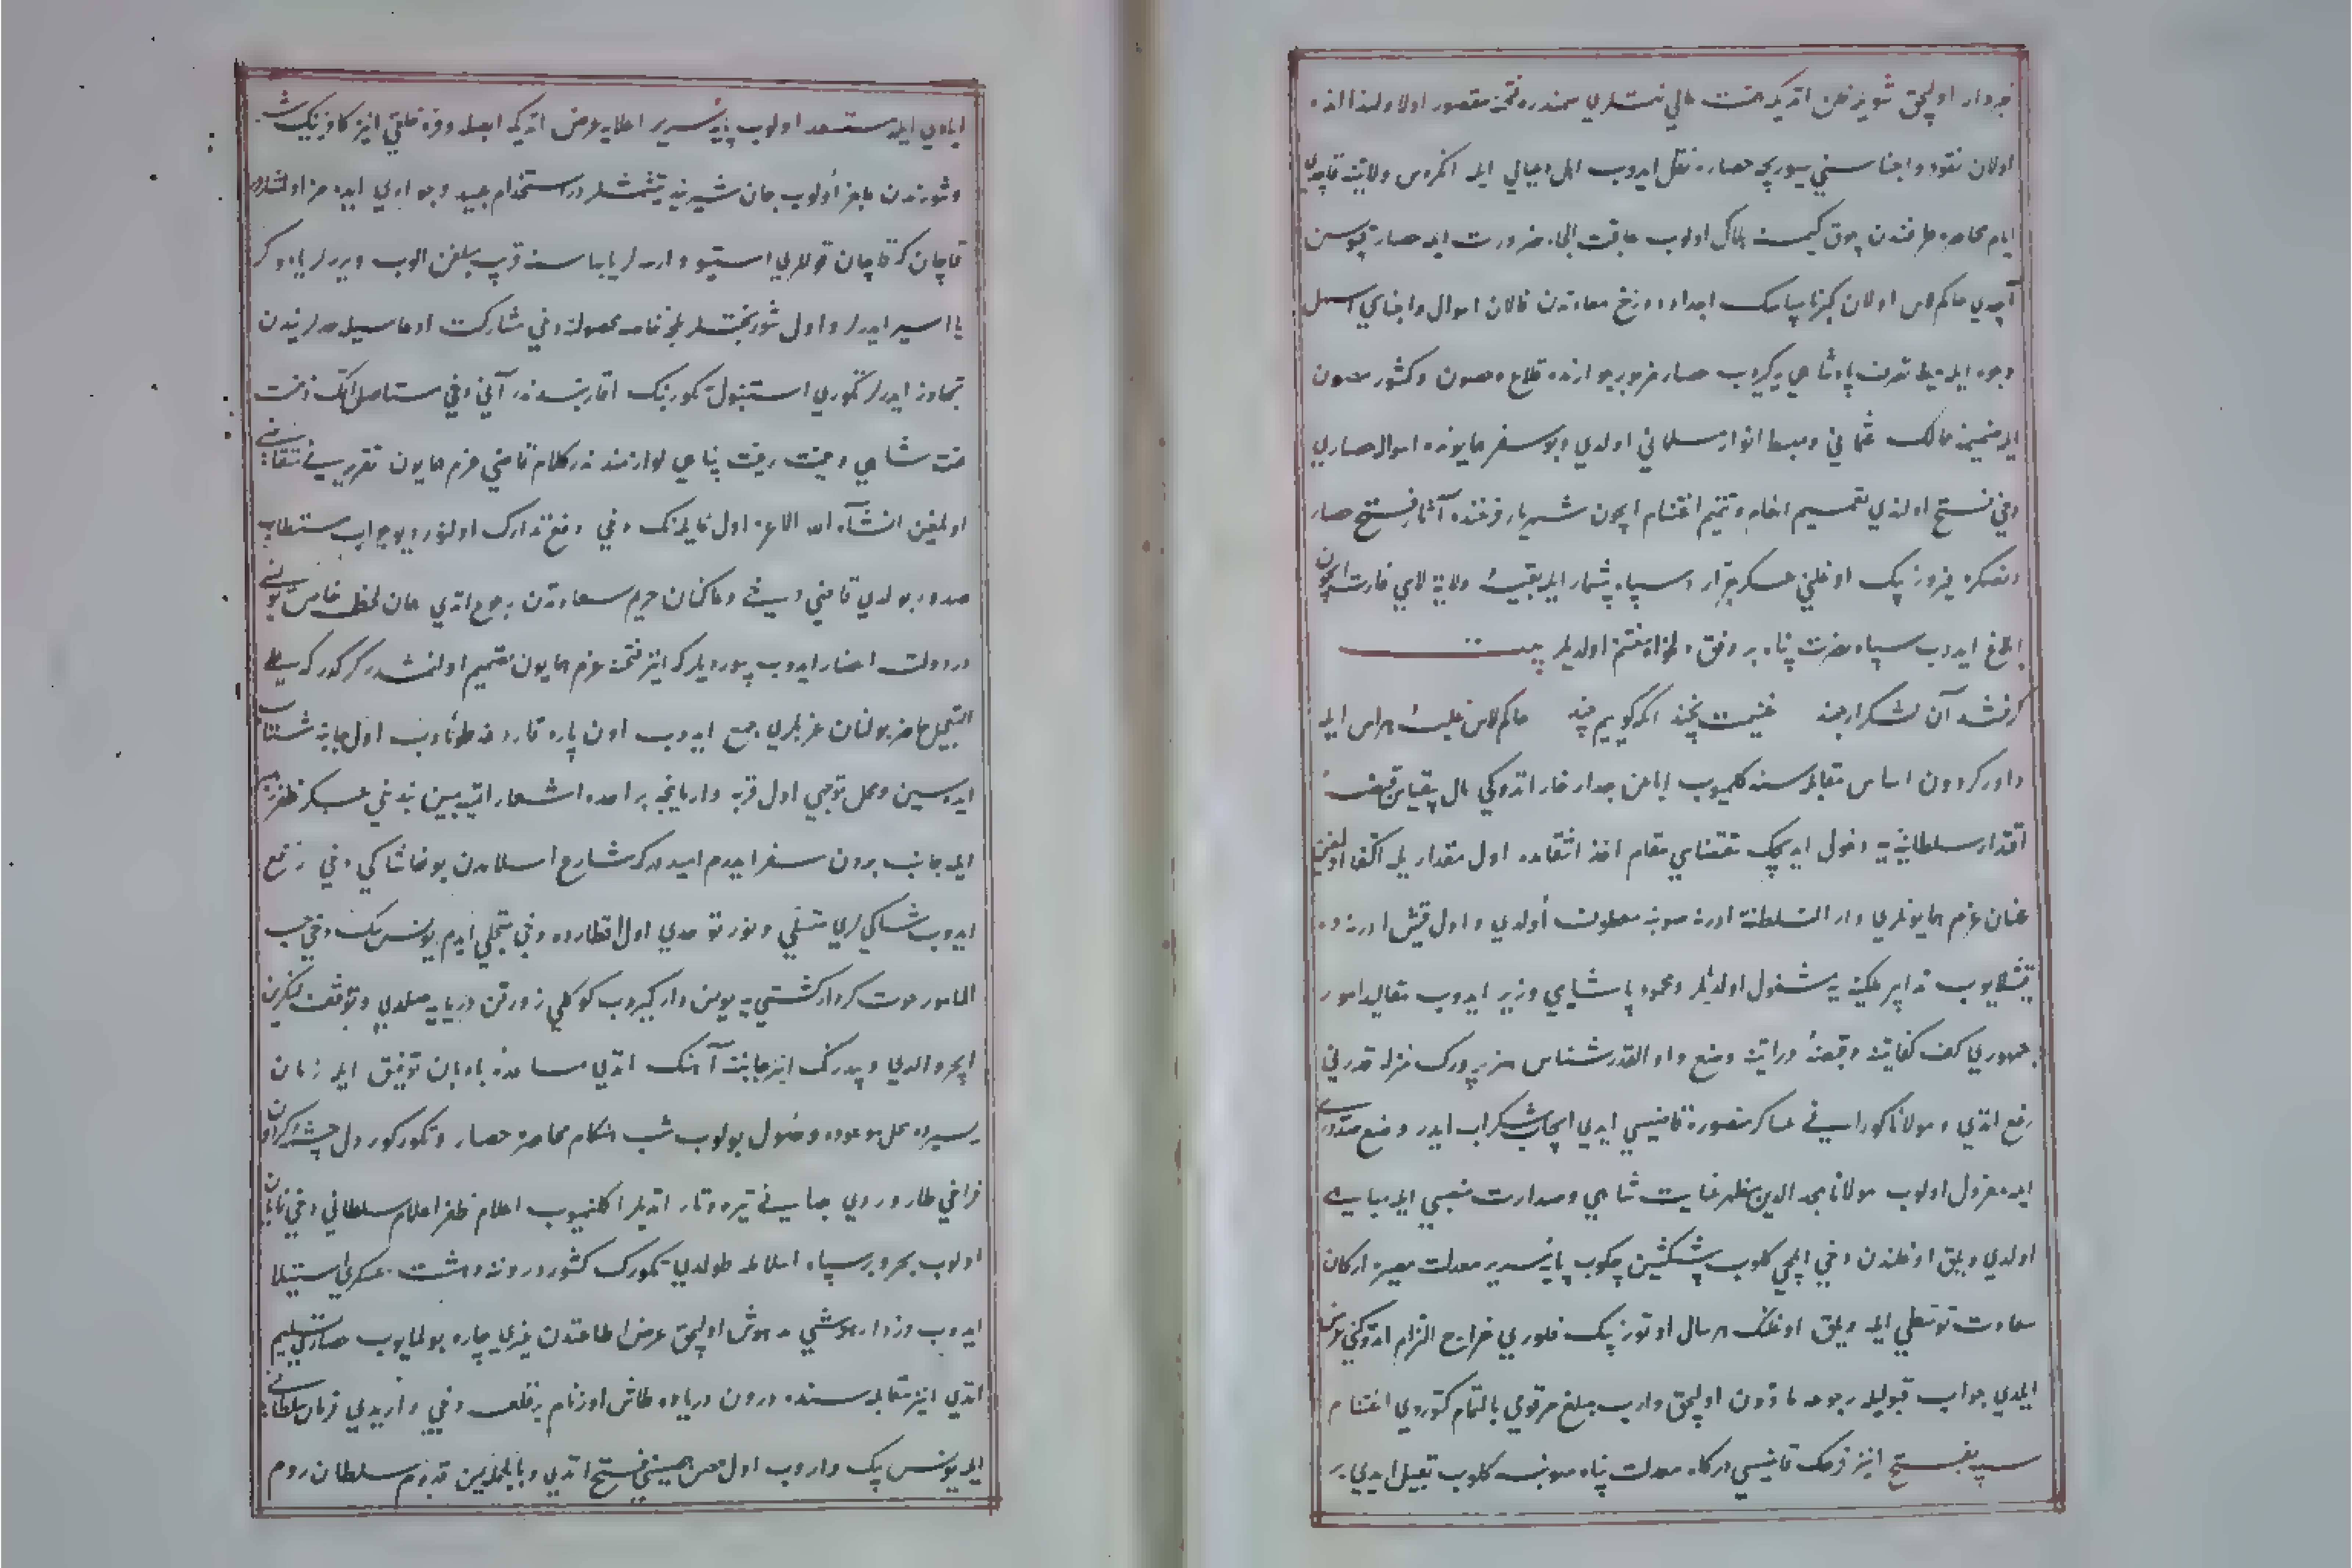 خبردار اولیجق شویله ظن اتدیکه همت عالی نهمتلری سمندره فتحنه مقصور اولا ولهذا انده
اولان نقود و اجناسنی سوریجه حصاره نقل ایدوب اهل و عیالی ایله انکروس ولایتنه قاچدی
ایام محاصره طرفیندن چوق کیمسه هلاک اولوب عاقبت الجاء ضرورت ایله حصار قپوسن
آچدی حاکم لاس اولان اجداد دوزخ معادندن قالان اموال و اجناسی اسهل
وجوه ایله ید تصرف پادشاهی یه کیروب حصار مزبور جوارنده قلاع و حصون و کشور مصون
ایله ضمیمه ممالک عثمانی و مهبط انوار مسلمانی اولدی و بو سفر همایونده اموال حصاری
دخی فتح اولندی تقسیم اغنام و تتمیم اغتنام ایچون شهریار فرخنده آثار فتح حصار
دنصکره فیروز بک اوغلنی عسکر جرار و سپاه بیشمار ایله بقیه ولایة لاسی غارت ایچون
ابلاغ ایدوب سپاه نصرت پناه بر وفق دلخواه مغتنم اولدیلر بیت
کرفتند آن لشکر ارجمند غنیمت نچند انکه کوییم چند حاکم لاس غلبه هراس ایله
داور کردون اساس مقابله سنه کلمیوب اباعن جد ادخار اتدوکی مال بیقیاس قبضه
اقتدار سلطانیه دخول ایدیجک مقتضای مقام اخذ انتقامده اول مقدار یله اکتفا اولنمغین
عنان عزم همایونلری دار السلطنة ادرنه صوبنه معطوف اولدی و اول قیش ادرنه ده
قیشلایوب تدابیر ملکیه یه مشغول اولدیلر و محمود پاشایی وزیر ایدوب مقالید امور
جمهوری کف کفایتنه و قبضه درایتنه وضع و او القدر شناس هنرپرورک منزله قدرنی
رفع اتدی و مولانا کورانی عساکر منصوره قاضیسی ایدی ایجاب شکراب ایدر وضع صدوری
ایله معزول اولوب مولانا مجد الدین مظهر عنایت شاهی و صدارت منصبی ایله مباهی
اولدی و یلق اوغلندن دخی ایلچی کلوب پیشکشین چکوب پایه سریر معدلت مصیره ارکان
سعادت توسطی ایله ویلق اوغلنک هر سال اوتوز بیک فلوری خراج التزام اتدوکنی عرض
ایلدی جواب قبولیله رجوعه ماذون اولیجق واروب مبلغ مرقومی بالتمام کتوردی اغتنام
سبب فتح اینز فرهنک قاضیسی درکاه معدلت پناه صوبنه کلوب تقبیل ایدی بر
ایادی ایله مستسعد اولوب پایه سریر اعلایه عرض اتدیکه ابصله و فره خلقی اینز کافرینک شر
و شورندن عاجز اولوب جان شیرینه یتشمشلردر استخدام عبید و جواری ایده مز اولمشلردر
قاچان که قاچان قوللری استیو وارسه لر یا بهاسنه قریب مبلغن الوب ویررلر یاد و کر
یا اسیر ایدرلر و اول شوربختلر مملحه خاصه محصولنه دخی مشارکت ادعاسیله حدلرندن
تجاوز ایدرلر تکوری استنبول تکورینک اقاربندندر آنی دخی مستاصل اتمک ذمت
همت شاهی و همت رعیت پناهی لوازمندندر کلام قاضی عزم همایون تقریبنی تقاضا
اولمغین انشاء الله الاعز اول غایله نک دخی دفعی تدارک اولنور دیو جواب مستطاب
صدور بولدی قاضی دخی دعاکنان حریم سعادتدن رجوع اتدی همان لحظه خاص یونس
در دولت احضار ایدوب بیوردیلر که اینز فتحنه عزم همایون تصمیم اولنمشدر کرکدر که سبیل
التعجیل حاضر بولنان عزبلری جمع ایدوب اون پاره قادرغه طوناددب اول جانبه شتاب
ایده سین و محل توجهی اول قربه وارماینجه بر احده اشعار اتمیه سین بن دخی عسکر ظفر رهبر
ایله جانب بردن سفر ایدرم امیددر که مشارع اسلامدن بو خاشاکی دخی رفع
ایدوب شاکی لری متسلی و نور توحیدی اول اقطارده دخی متجلی ایدم یونس بک دخی حسب
المامور حوت کردار کشتی یه یونس وار کیروب کوکلی زورقن دریایه صلدی و توقف لنکرین
ایچرو الدی و بیدرنک اینز جانبنه آهنک اتدی مساعده بادبان توفیق ایله زمان
یسیرده محل موعوده وصول بولوب شب هنکام محاصره حصار و تکور کور دل چشمه کران
فراخی طار و روی جهانی تیره و تار اتدیلر اکلنمیوب اعلام ظفر اعلام سلطانی دخی نمایان
اولوب بحر و بر سپاه اسلامله طولدی تکورک کشور دروننه دهشت عسکری استیلا
ایدوب وزدار هوشی مدهوش اولیجق عرض اطاعتدن غیری چاره بولمایوب حصاری تسلیم
اتدی اینز مقابله سنده درون دریاده طاش اوز نام بر قلعه دخی وار ایدی فرمان سلطانی
ایله یونس بک واروب اول حصن حصینی فتح اتدی و بالجمله یمن قدوم سلطان روم